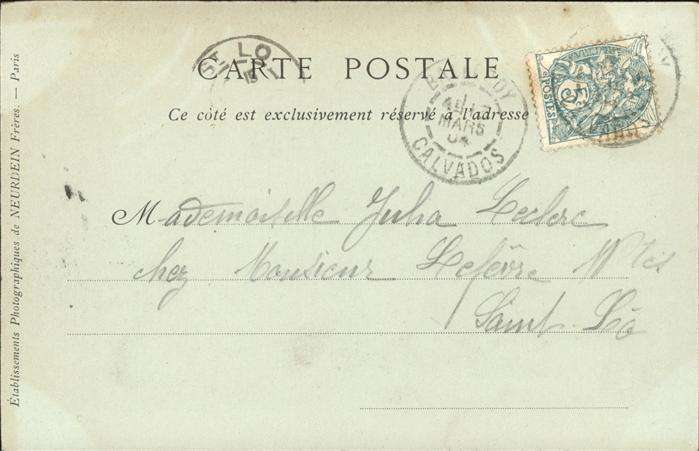 St LO
CARTE POSTALE
Ce côté est exclusivement réservé à l'adresse
MARS
04
CALVADOS
5c
POSTES
Mademoiselle Julia Leclerc
chez Monsieur Lefèvre
Saint Lô
Établissements Photographiques de NEURDEIN Frères. — Paris